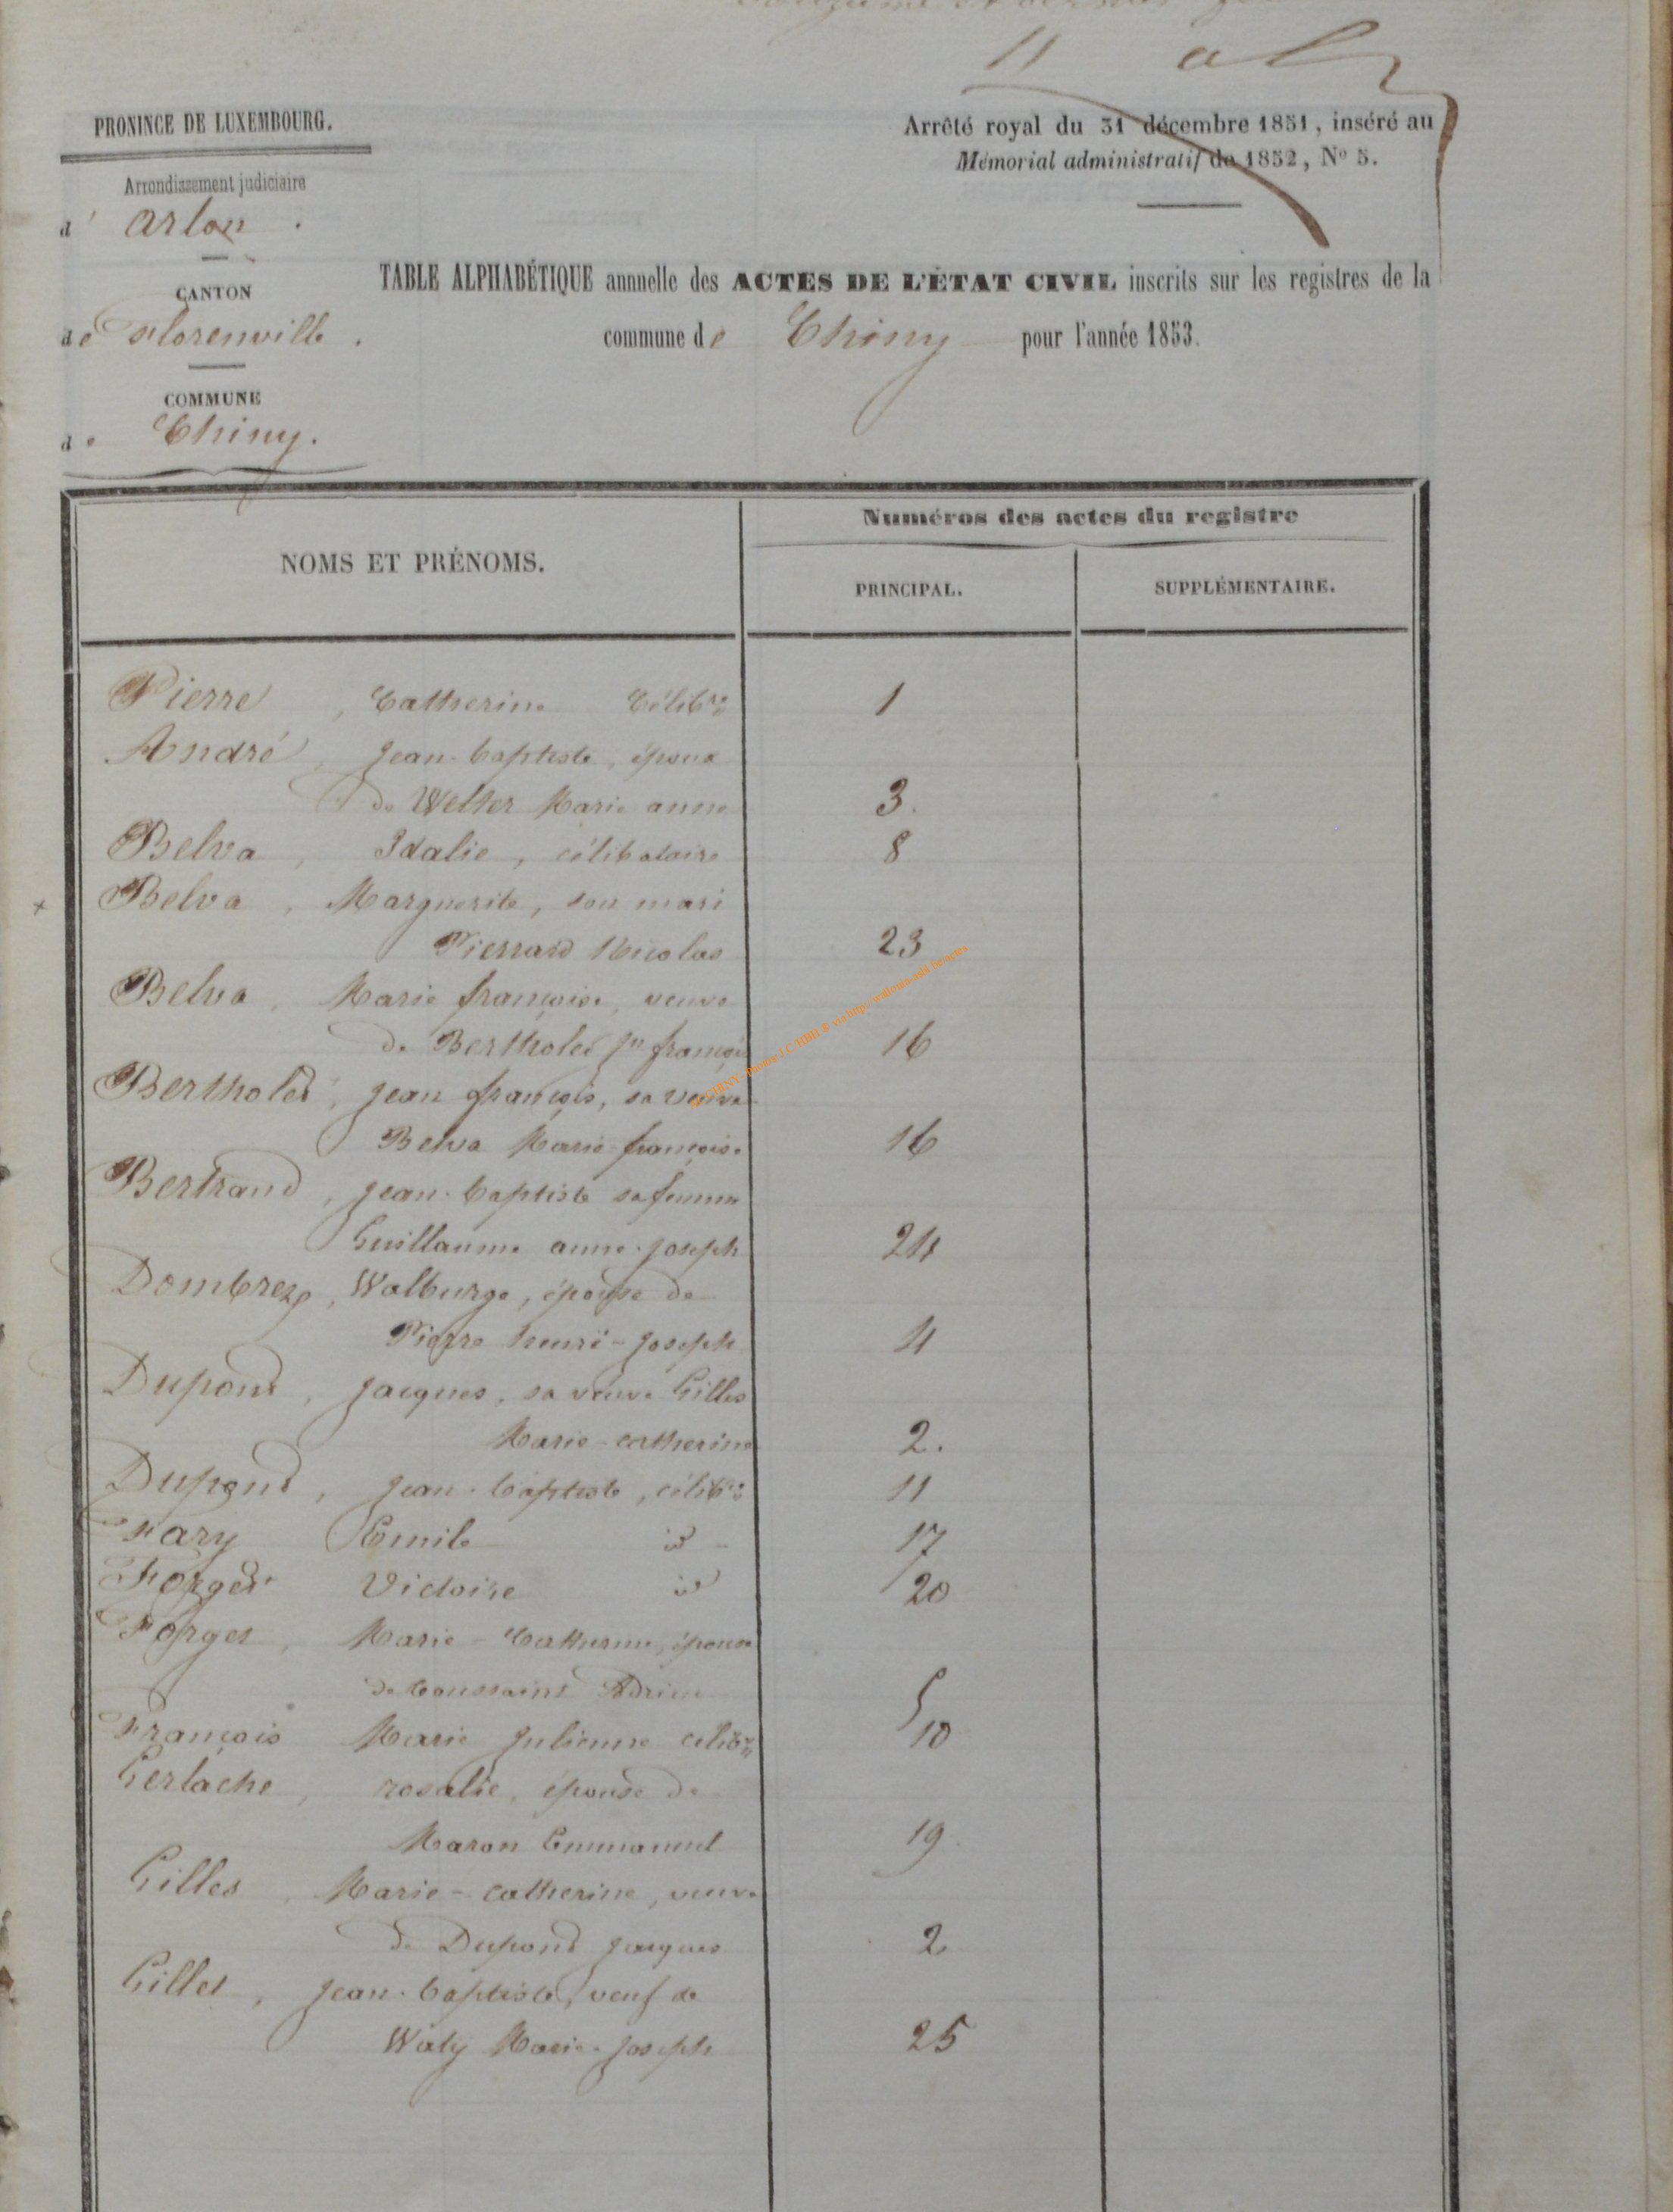 PRONINCE DE LUXEMBOURG.
Arrêté royal du 31 décembre 1851, inséré au
Mémorial administratif de 1852, Nº 5.
Arrondissement judiciaire
d' Arlon.
CANTON
de Florenville.
COMMUNE
de Chiny.
TABLE ALPHABÉTIQUE annnelle des ACTES DE L'ÉTAT CIVIL inscrits sur les registres de la
commune de Chiny pour l'année 1853.
NOMS ET PRÉNOMS.
Numéros des actes du registre
PRINCIPAL.
SUPPLÉMENTAIRE.
Pierre, Catherine Célibre 1
André, Jean-baptiste, époux
de Welter Marie anne 3.
Belva, Idalie, célibataire 8
Belva, Marguerite, son mari
Pierrard Nicolas 23
Belva, Marie françoise, veuve
de Bertholet jn françois 16
Bertholet, jean françois, sa veuve
Belva Marie françoise 16
Bertrand, jean-baptiste sa femme
Guillaume anne-joseph 24
Dombrez, Walburge, épouse de
Pierre henri-joseph 4
Dupond, jacques, sa veuve Gilles
Marie-catherine 2.
Dupond, jean-baptiste, célibre 11
Fary Emile id 17
Forget Victoire id 20
Forget, Marie-Catherine, épouse
de toussaint Adrien 5
François Marie Julienne célibre 10
Gerlache, rosalie, épouse de
Maron Emmanuel 19
Gilles, Marie-catherine, veuve
de Dupond jacques 2
Gillet, jean-baptiste, veuf de
Waty Marie-joseph 25